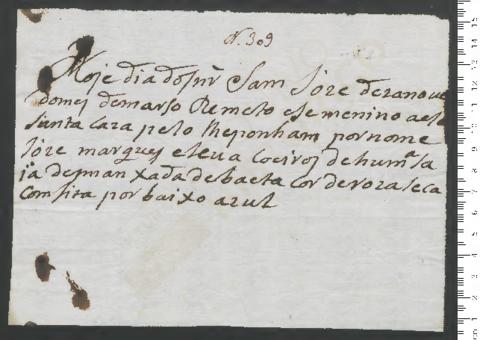 N. 309
Hoje dia do snr Sam Joze dezanove
do mes de marso Remeto ese menino a esta
santa caza pelo lhe ponham por nome
Joze marques e leva coeiros de huma sa
ia desmanxada de baeta cor de roza seca
com fita por baixo azul